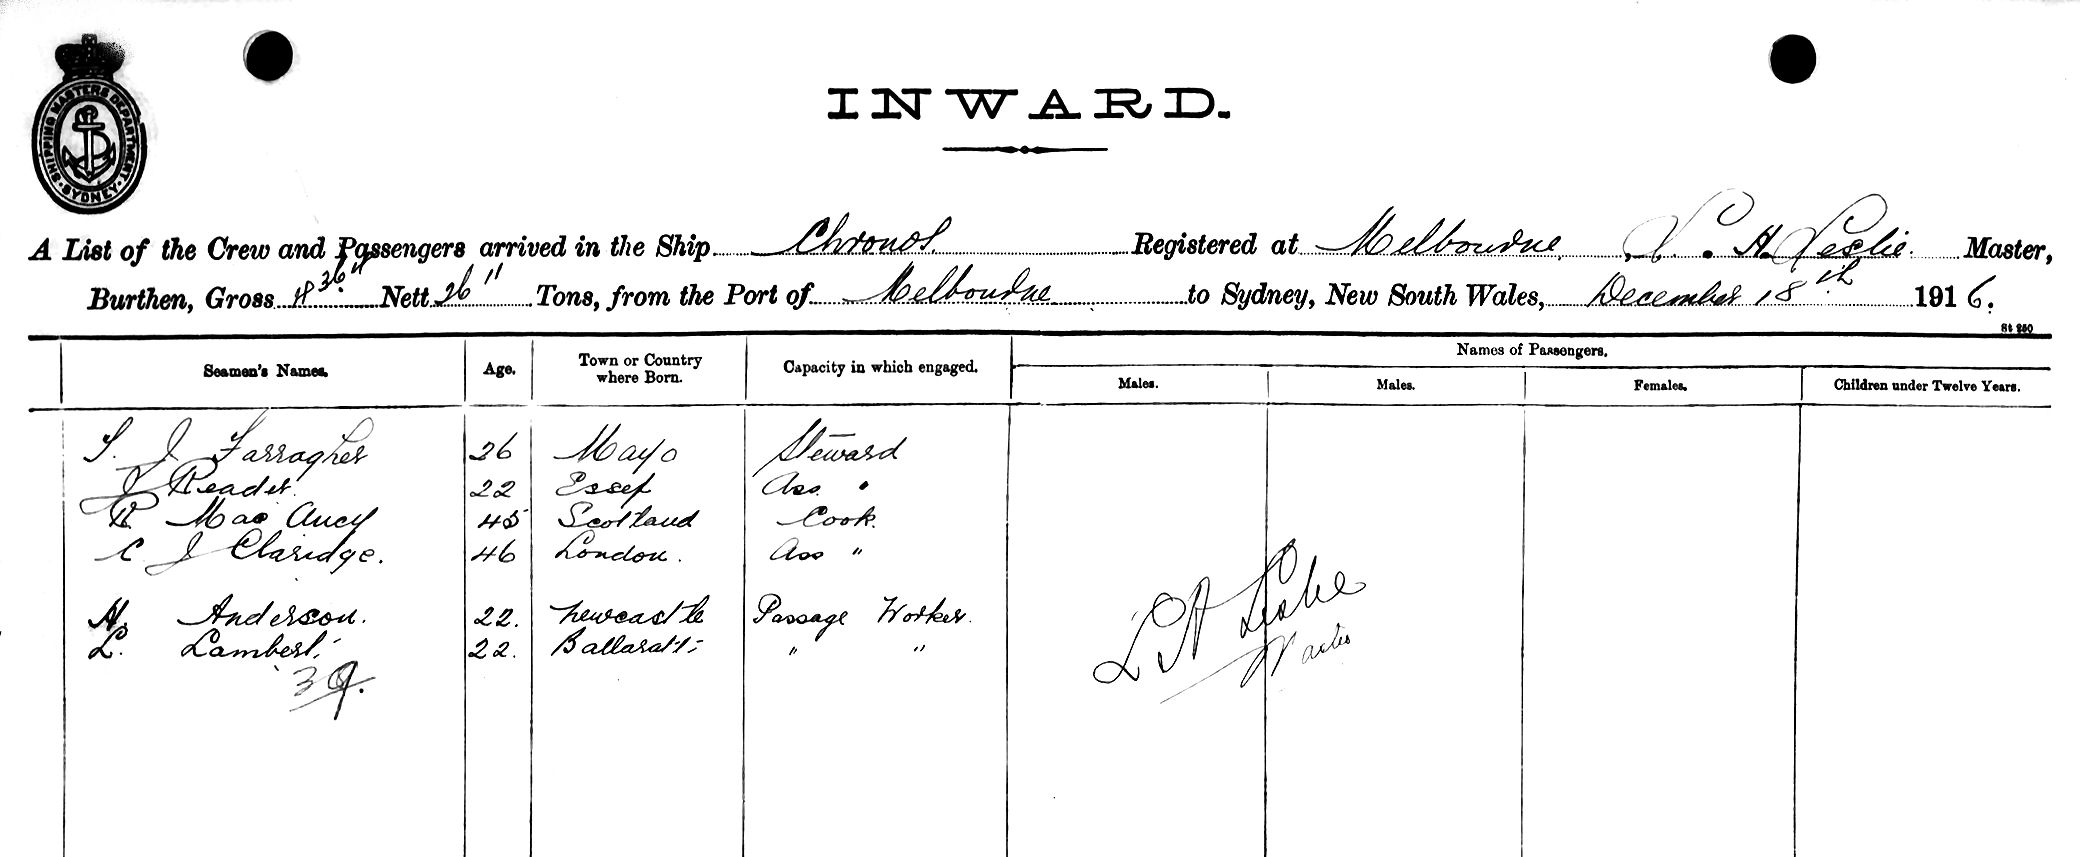 SHIPPING MASTERS DEPARTMENT. SYDNEY.
INWARD.
A List of the Crew and Passengers arrived in the Ship Chronos. Registered at Melbourne, L. H. Leslie. Master,
Burthen, Gross Nett 26" Tons, from the Port of Melbourne to Sydney, New South Wales, December 18th 1916.
St 250
Seamen's Names. Age. Town or Country where Born. Capacity in which engaged. Names of Passengers.
Males. Males. Females. Children under Twelve Years.
S. J Farragher 26 Mayo Steward
J Reader. 22 Essex Ass "
R Mac 45 Scotland Cook.
C J Claridge. 46 London. Ass "
H. Anderson. 22. Newcastle Passage Worker.
L. Lambert. 22. Ballaratt " "
39.
L H Leslie
Master